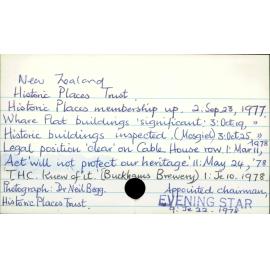 New Zealand
Historic Places Trust.
Historic Places membership up. 2. Sep 23, 1977.
Whare Flat buildings 'significant' 3: Oct 19, "
Historic buildings inspected. (Mosgiel) 3: Oct 25, "
Legal position 'clear' on Cable House row. 1: Mar 11, 1978
Act 'will not protect our heritage' 11: May 24, '78
T.H.C. Knew of it. (Buckhams Brewery) 1: Je 10. 1978
Photograph: Dr Neil Begg. Appointed chairman,
Historic Places Trust. EVENING STAR
9: Je 22. 1978